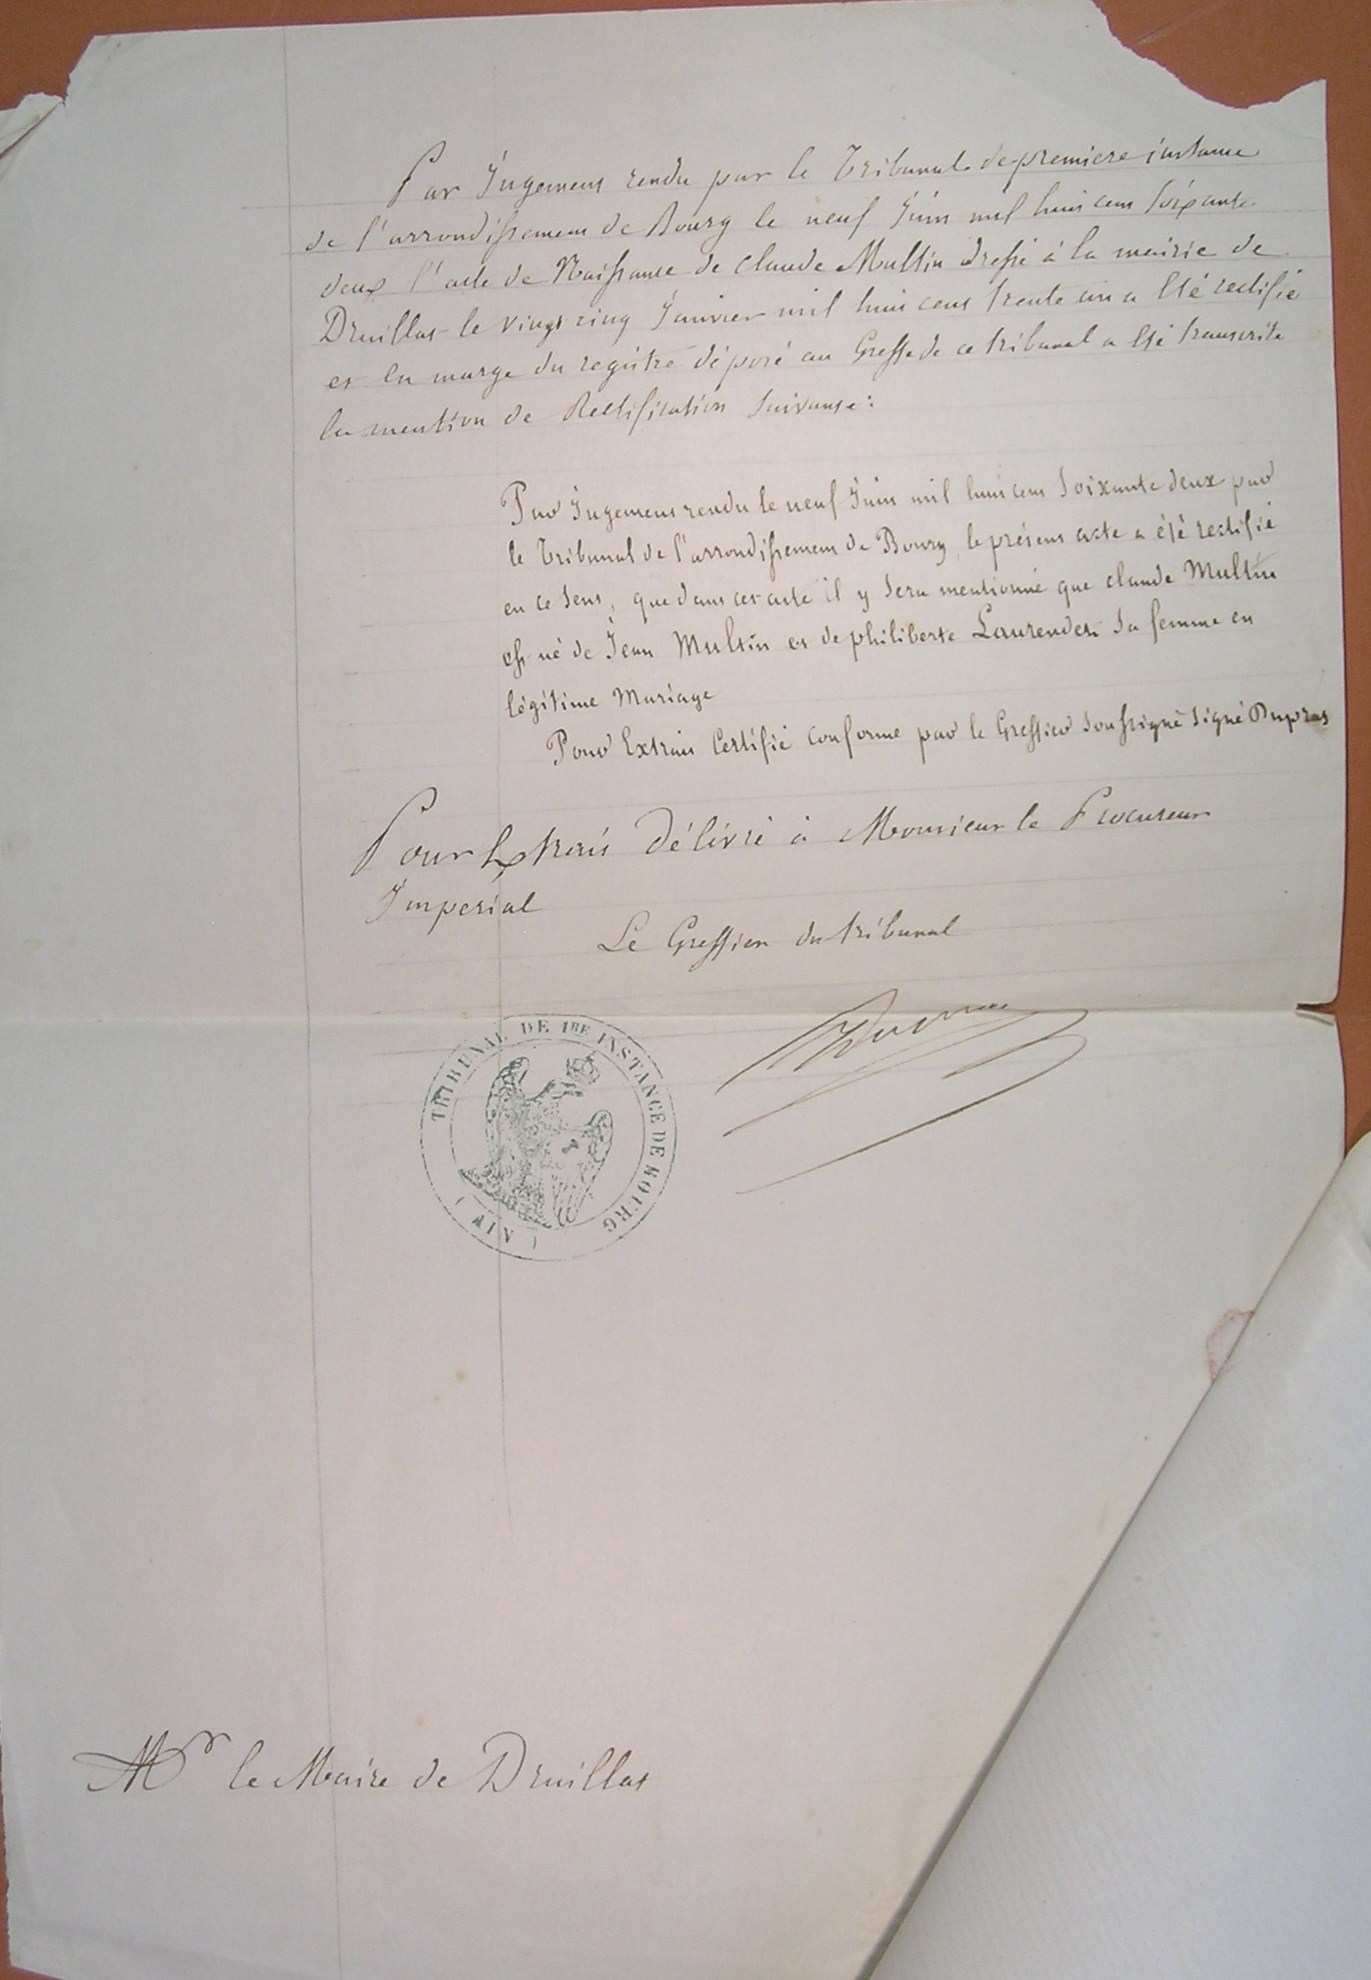 Par Jugement rendu par le Tribunal de premiere instance
de l'arrondissement de Bourg le neuf Juin mil huit cent soixante
deux l'acte de Naissance de Claude Multin dressé à la mairie de
Druillas le vingt cinq Janvier mil huit cent trente un a été rectifié
et en marge du registre déposé au Greffe de ce tribunal a été transcrite
la mention de Rectification suivante:
Par Jugement rendu le neuf Juin mil huit cent soixante deux par
le Tribunal de l'arrondissement de Bourg, le présent acte a été rectifié
en ce sens, que dans cet acte il y sera mentionné que claude Multin
est né de Jean Multin et de philiberte Laurendet sa femme en
légitime Mariage
Pour Extrait Certifié conforme par le Greffier soussigné signé Dupras
Pour Extrait Délivré à Monsieur le Procureur
Imperial
Le Greffier du tribunal
TRIBUNAL DE 1RE INSTANCE DE BOURG
(AIN)
Mr le Maire de Druillas